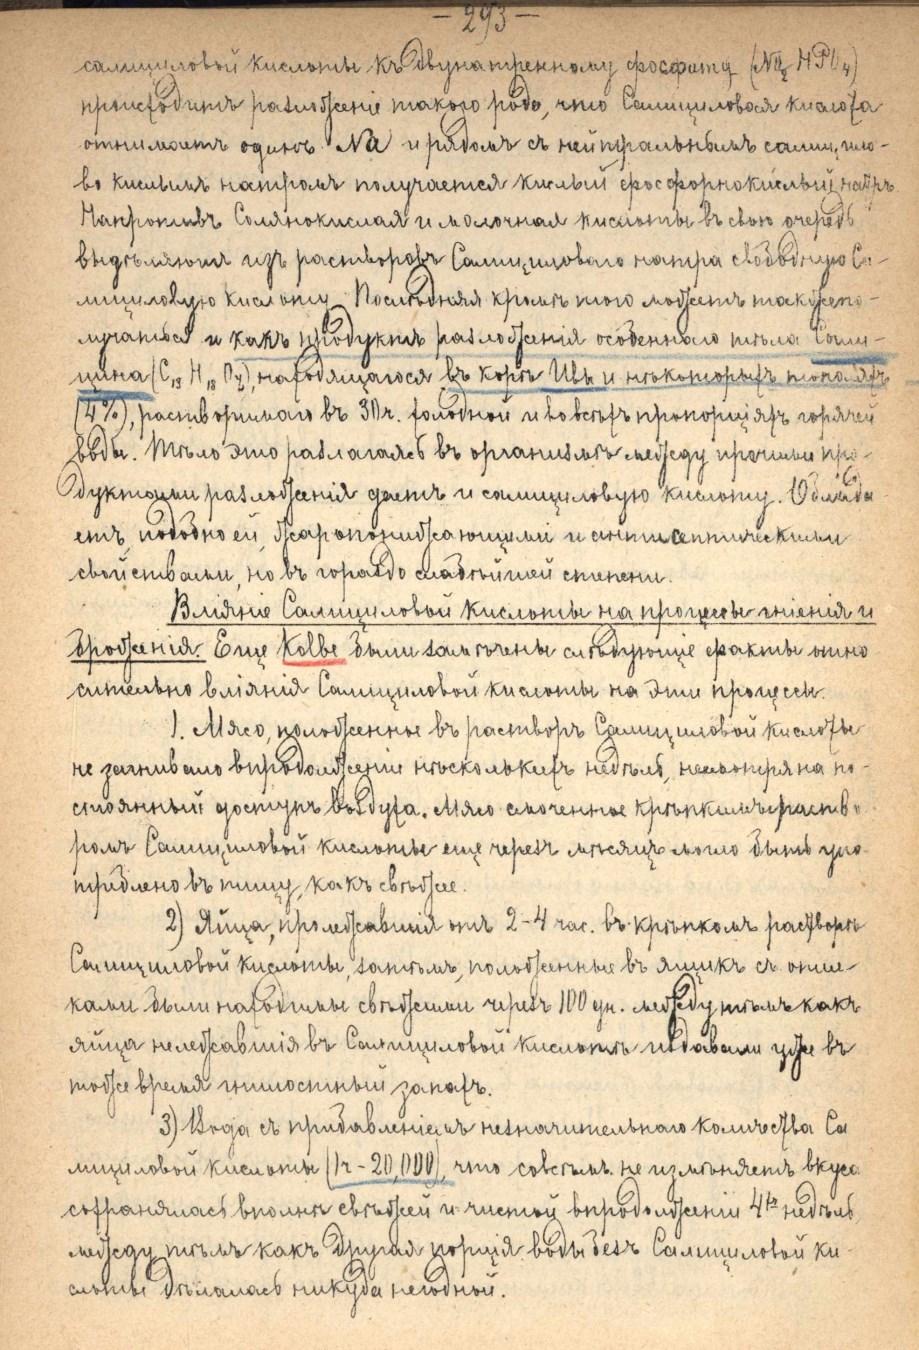 — 293 —
салициловой кислоты къ двунатренному фосфату (Na₂ HPO₄)
происходитъ разложеніе такого рода, что Салициловая кислота
отнимаетъ одинъ Na и рядомъ съ нейтральнымъ салицило-
во кислымъ натромъ получается кислый фосфорнокислый натръ.
Напротивъ Солянокислая и молочная кислоты въ свою очередь
выдѣляютъ изъ растворовъ Салициловаго натра свободную Са-
лициловую кислоту. Послѣдняя кромѣ того можетъ также по-
лучаться и какъ продуктъ разложенія особеннаго тѣла Сали-
цина (C₁₃ H₁₈ O₇), находящагося въ корѣ Ивы и нѣкоторыхъ тополяхъ
(4%), растворимаго въ 30 ч. холодной и во всѣхъ пропорціяхъ горячей
воды. Тѣло это разлагаясь въ организмѣ между прочими про-
дуктами разложенія даетъ и салициловую кислоту. Облада-
етъ, подобно ей, жаропонижающими и антисептическими
свойствами, но въ гораздо слабѣйшей степени.
Вліяніе Салициловой кислоты на процессы гніенія и
броженія. Еще Kolbe были замѣчены слѣдующіе факты отно
сительно вліянія Салициловой кислоты на эти процессы.
1. Мясо, положенное въ растворъ Салициловой кислоты
не загнивало впродолженіи нѣсколькихъ недѣль, несмотря на по-
стоянный доступъ воздуха. Мясо смоченное крѣпкимъ раство
ромъ Салициловой кислоты еще черезъ мѣсяцъ могло быть упо-
треблено въ пищу, какъ свѣжее.
2) Яйца, пролежавшія отъ 2-4 час. въ крѣпкомъ растворѣ
Салициловой кислоты, затѣмъ, положенные въ ящикъ съ опил-
ками были находимы свѣжими черезъ 100 дн. между тѣмъ какъ
яйца нележавшія въ Салициловой кислотѣ издавали уже въ
тоже время гнилостный запахъ.
3) Вода съ прибавленіемъ незначительнаго количества Са
лициловой кислоты (1ч-20,000), что совсѣмъ не измѣняетъ вкуса
сохранялась вполнѣ свѣжей и чистой впродолженіи 4хъ недѣль,
между тѣмъ какъ другая порція воды безъ Салициловой ки-
слоты дѣлалась никуда негодной.